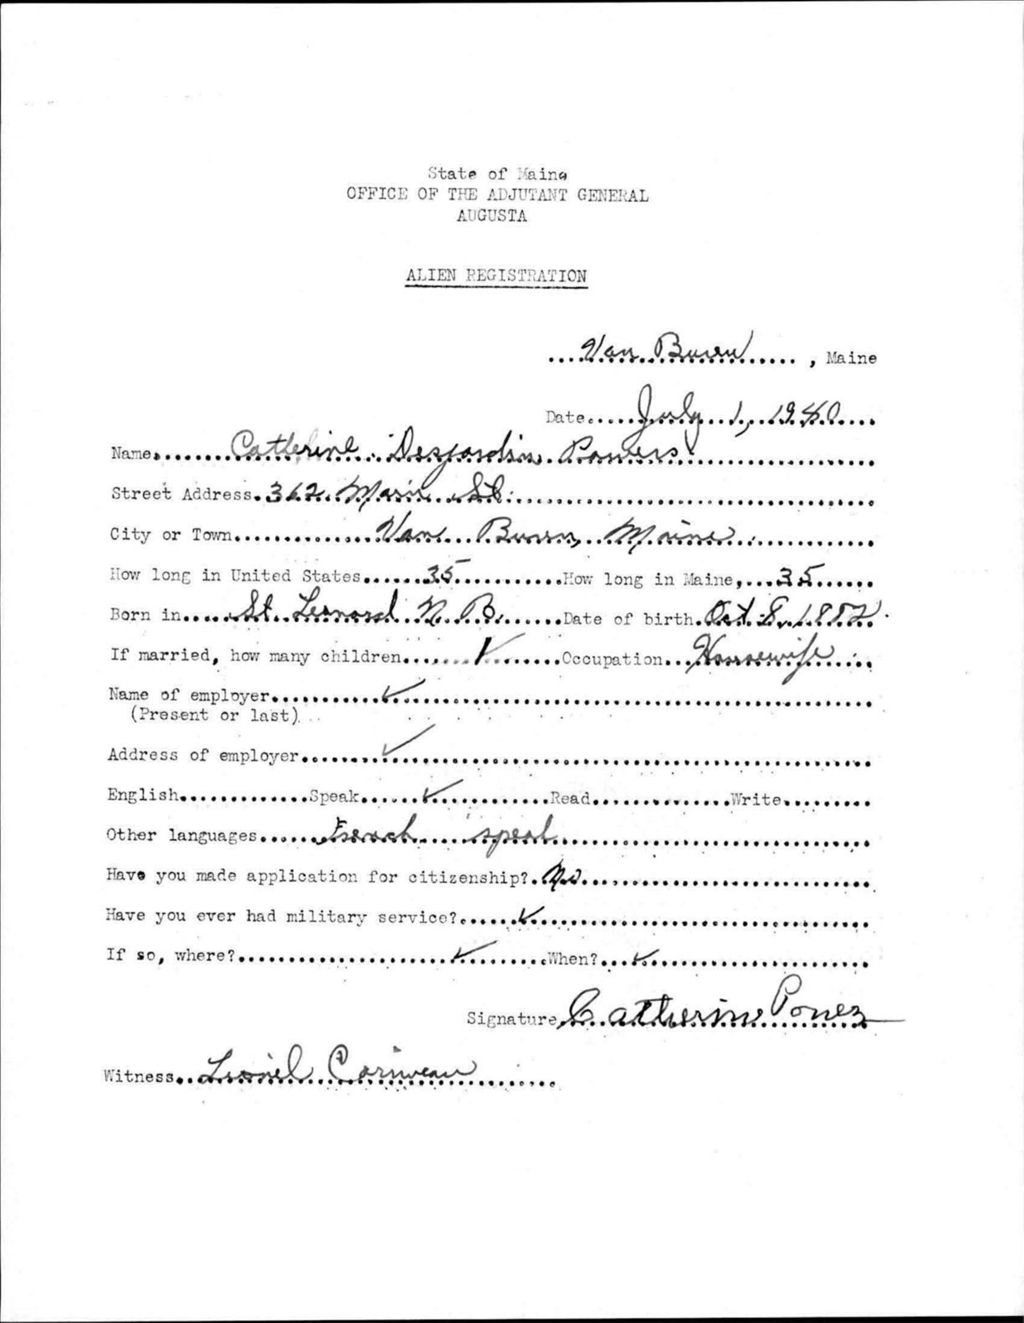 State of Maine
OFFICE OF THE ADJUTANT GENERAL
AUGUSTA
ALIEN REGISTRATION
Van Buren, Maine
Date July 1, 1940
Name Catherine Desjardin Powers
Street Address 362 Main St.
City or Town Van Buren, Maine
How long in United States 35 How long in Maine, 35
Born in St. Leonard N.B. Date of birth Oct 8, 1882
If married, how many children Occupation Housewife
Name of employer ✓
(Present or last)
Address of employer ✓
English Speak ✓ Read Write
Other languages French speak
Have you made application for citizenship? No
Have you ever had military service? ✓
If so, where? ✓ When? ✓
Signature Catherine
Witness Lionel Corriveau